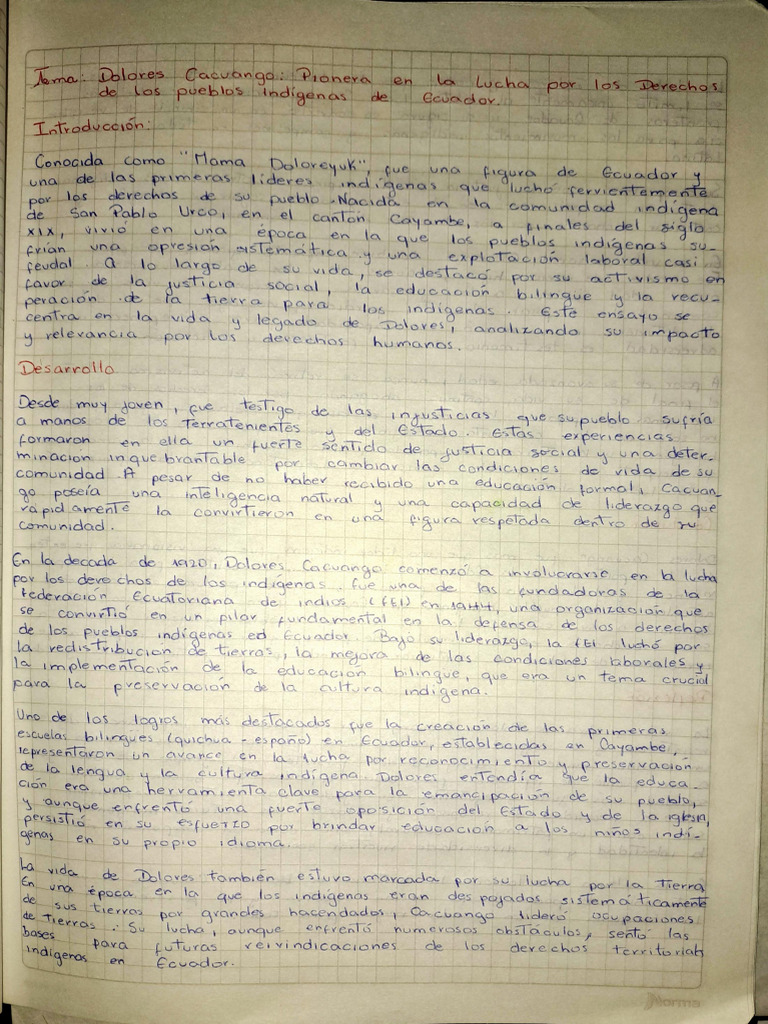 Tema: Dolores Cacuango: Pionera en la Lucha por los Derechos
de los pueblos indígenas de Ecuador.
Introducción:
Conocida como "Mama Doloreyuk", fue una figura de Ecuador y
una de las primeras lideres indígenas que luchó fervientemente
por los derechos de su pueblo. Nacida en la comunidad indígena
de San Pablo Urco, en el cantón Cayambe, a finales del siglo
XIX, vivió en una época en la que los pueblos indígenas su-
frían una opresión sistemática y una explotación laboral casi
feudal. A lo largo de su vida, se destacó por su activismo en
favor de la justicia social, la educación bilingue y la recu-
peración de la tierra para los indígenas. Este ensayo se
centra en la vida y legado de Dolores, analizando su impacto
y relevancia por los derechos humanos.
Desarrollo
Desde muy joven, fue testigo de las injusticias que su pueblo sufría
a manos de los terratenientes y del Estado. Estas experiencias
formaron en ella un fuerte sentido de justicia social y una deter-
minacion inquebrantable por cambiar las condiciones de vida de su
comunidad. A pesar de no haber recibido una educación formal, Cacuan-
go poseía una inteligencia natural y una capacidad de liderazgo que
rapidamente la convirtieron en una figura respetada dentro de su
comunidad.
En la decada de 1920, Dolores Cacuango comenzó a involucrarse en la lucha
por los derechos de los indígenas. fue una de las fundadoras de la
Federación Ecuatoriana de indios (FEI) en 1944, una organización que
se convirtió en un pilar fundamental en la defensa de los derechos
de los pueblos indígenas ed Ecuador. Bajo su liderazgo, la FEI luchó por
la redistribución de tierras, la mejora de las condiciones laborales y
la implementación de la educación bilingue, que era un tema crucial
para la preservación de la cultura indígena.
Uno de los logros más destacados fue la creación de las primeras
escuelas bilingues (quichua - español) en Ecuador, establecidas en Cayambe,
representaron un avance en la lucha por reconocimiento y preservación
de la lengua y la cultura indígena. Dolores entendía que la educa-
ción era una herramienta clave para la emancipación de su pueblo,
y aunque enfrentó una fuerte oposición del Estado y de la iglesia,
persistió en su esfuerzo por brindar educación a los niños indí-
genas en su propio idioma.
La vida de Dolores también estuvo marcada por su lucha por la Tierra
En una época en la que los indígenas eran despojados sistemáticamente
de sus tierras por grandes hacendados, Cacuango lideró ocupaciones
de tierras. Su lucha, aunque enfrentó numerosos obstáculos, sentó las
bases para futuras reivindicaciones de los derechos territorials
indígenas en Ecuador.
Norma